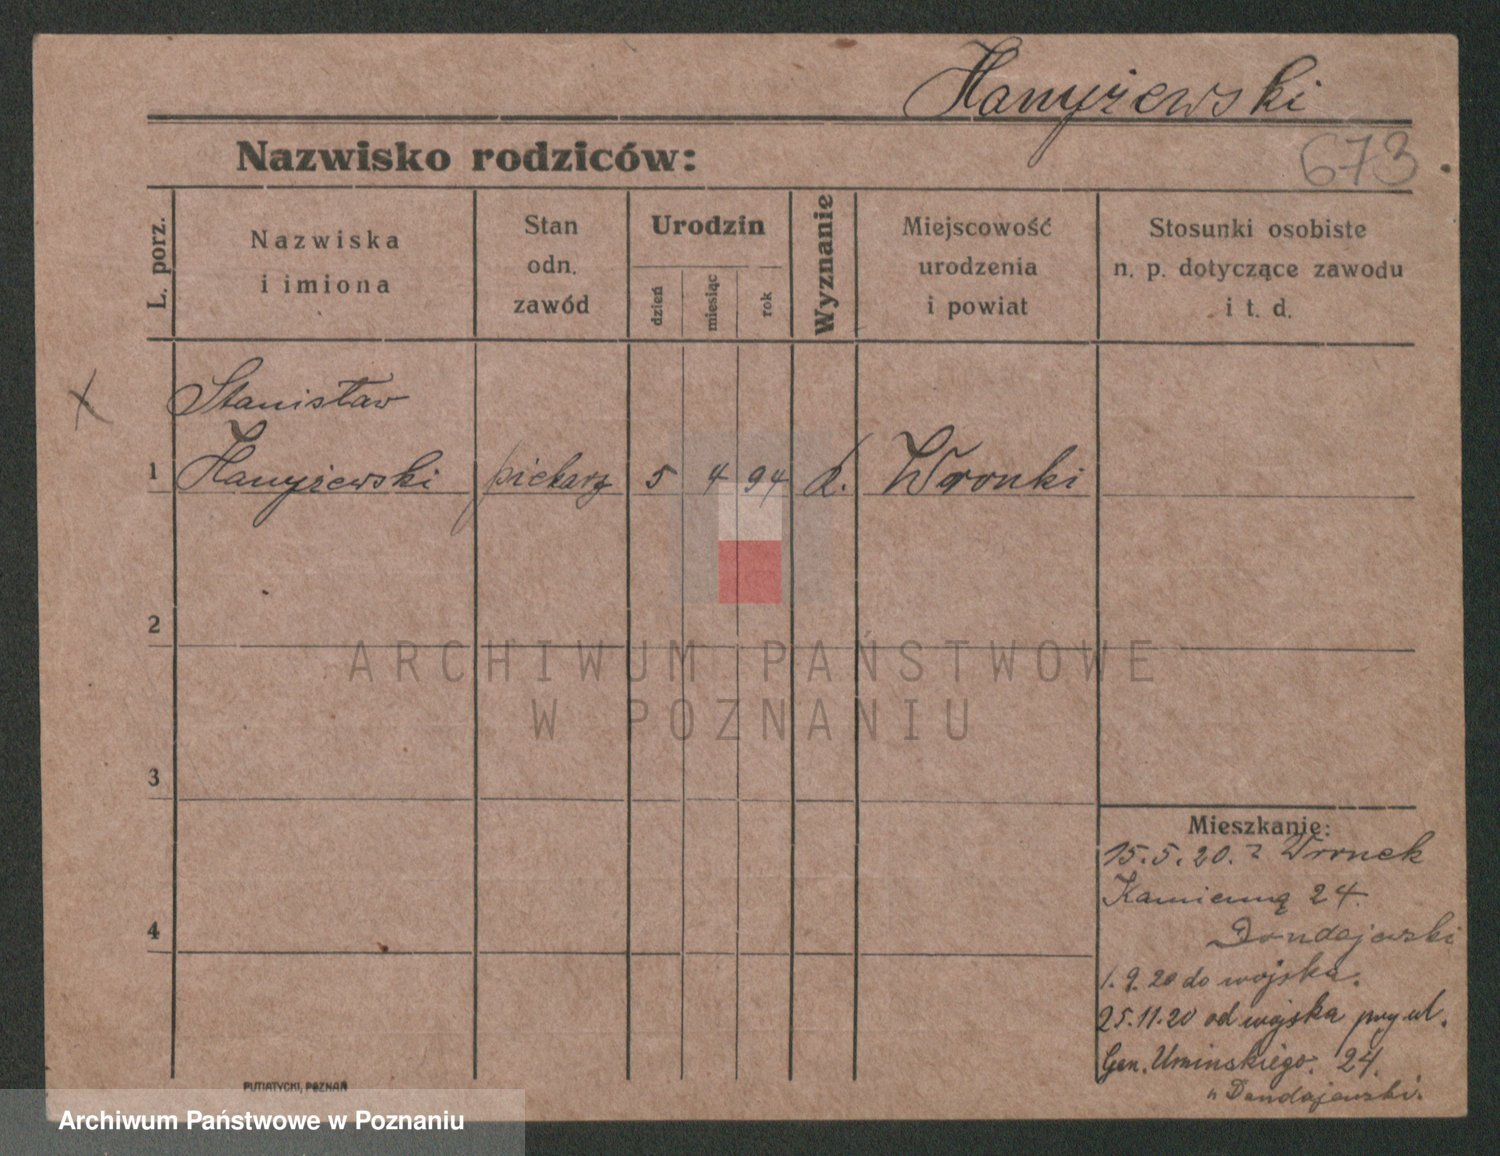 Hanyżewski
673
Nazwisko rodziców:
L. porz.
Nazwiska
i imiona
Stan
odn.
zawód
Urodzin
dzień
miesiąc
rok
Wyznanie
Miejscowość
urodzenia
i powiat
Stosunki osobiste
n. p. dotyczące zawodu
i t. d.
X
Stanisław
1 Hanyżewski piekarz 5 4 94 k. Wronki
2
3
4
ARCHIWUM PAŃSTWOWE
W POZNANIU
Mieszkanie:
15.5.20. z Wronek
Kamienną 24.
Dondajewski
1.9.20 do wojska.
25.11.20 od wojska przy ul.
Gen. Umińskiego. 24.
" Dondajewski.
PUTIATYCKI, POZNAŃ
Archiwum Państwowe w Poznaniu